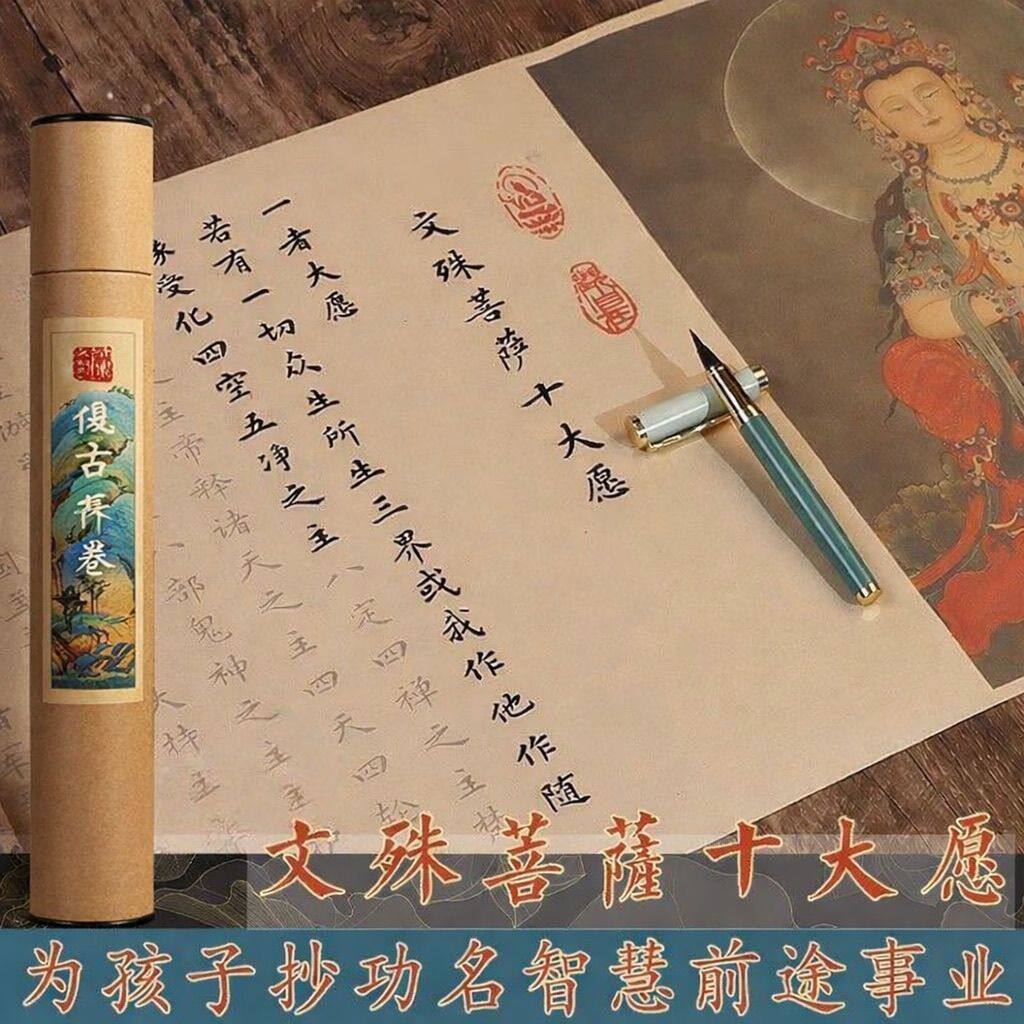 文殊菩萨十大愿
一者大愿
若有一切众生所生三界或我作他作随
缘受化四空五净之主八定四禅之主梵
主帝释诸天之主四天四
八部鬼神之主
復古長卷
文殊菩薩十大愿
为孩子抄功名智慧前途事业